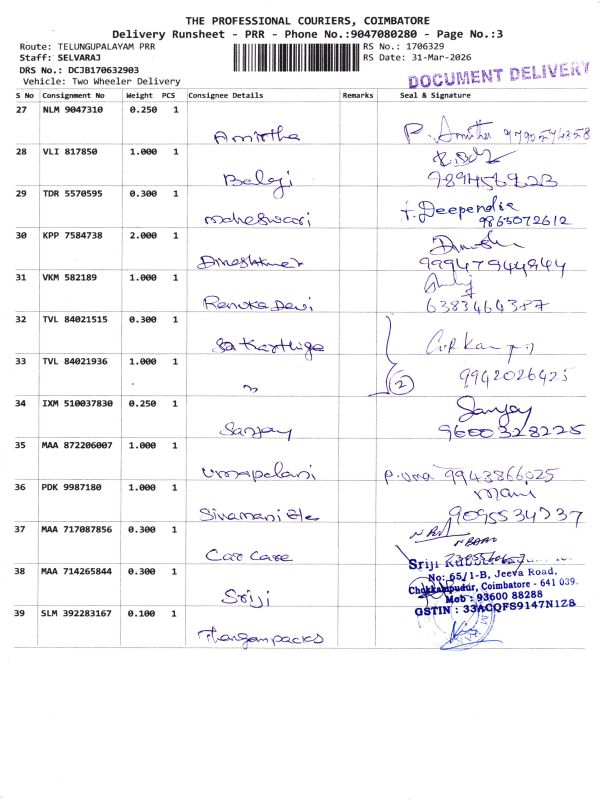 THE PROFESSIONAL COURIERS, COIMBATORE
Delivery Runsheet - PRR - Phone No.:9047080280 - Page No.:3
Route: TELUNGUPALAYAM PRR
RS No.: 1706329
Staff: SELVARAJ
RS Date: 31-Mar-2026
DRS No.: DCJB170632903
Vehicle: Two Wheeler Delivery
DOCUMENT DELIVERY
S No Consignment No Weight PCS Consignee Details Remarks Seal & Signature
27 NLM 9047310 0.250 1
Amirtha P. Amirtha
28 VLI 817850 1.000 1
Balaji
29 TDR 5570595 0.300 1
Maheswari Deependra 9865072612
30 KPP 7584738 2.000 1
Dineshkumar Dinesh 9994794494​4
31 VKM 582189 1.000 1
Renuka Devi 6383464387
32 TVL 84021515 0.300 1
Sa Karthige
33 TVL 84021936 1.000 1
2 9942026425
34 IXM 510037830 0.250 1
Sanjay Sanjay 9600328225
35 MAA 872206007 1.000 1
Umapelani P. Uma 9943866025
36 PDK 9987180 1.000 1
Sivamani Ele Mani 9095534737
37 MAA 717087856 0.300 1
Car Care
38 MAA 714265844 0.300 1
Sriji
Sriji
No: 65/1-B, Jeeva Road,
Chokkampudur, Coimbatore - 641 039.
Mob : 93600 88288
GSTIN : 33ACQFS9147N1Z8
39 SLM 392283167 0.100 1
Thangam packs